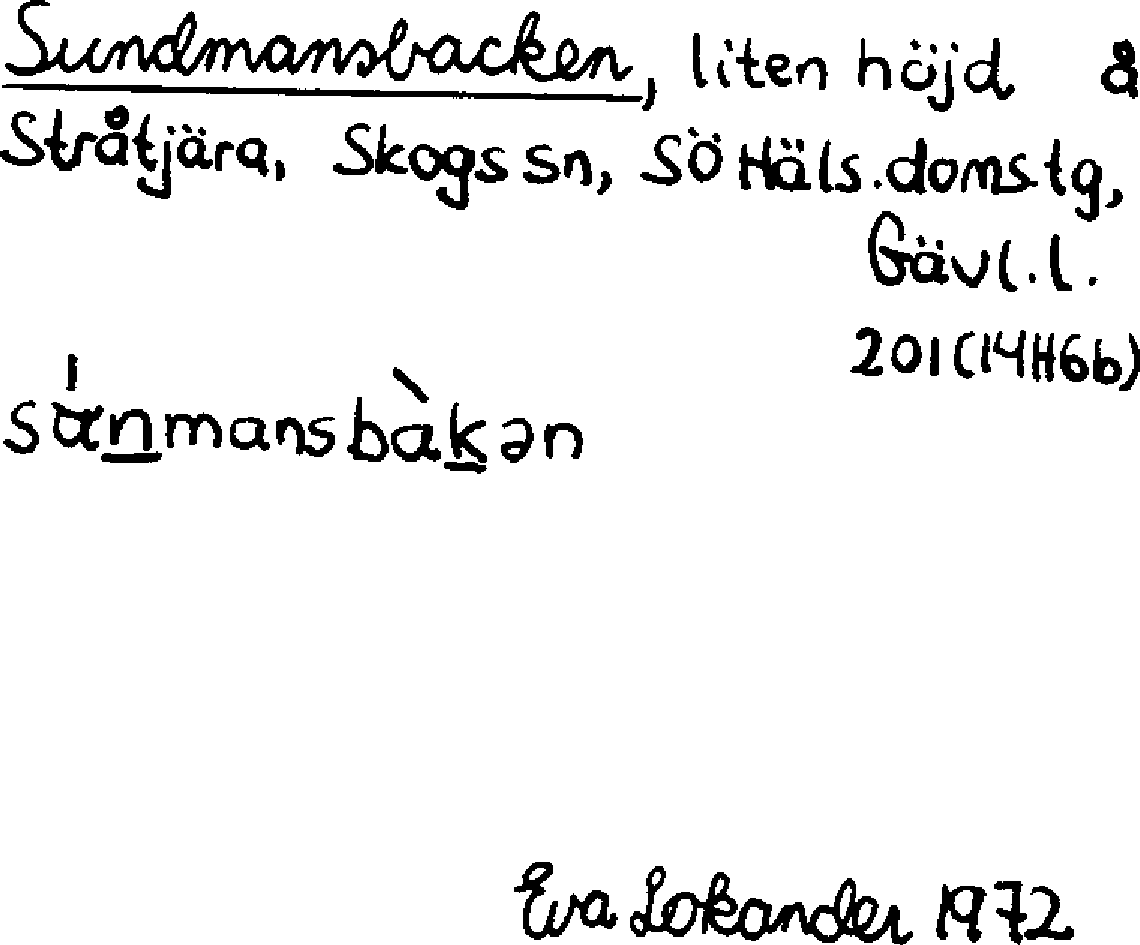 Sundmansbacken, liten höjd å
Stråtjära, Skogs sn, SÖ Häls. domstg,
Gävl. l.
201 (14H6b)
sánmansbàkən
Eva Lokander 1972